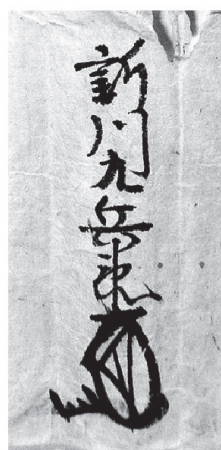 新川九兵衛